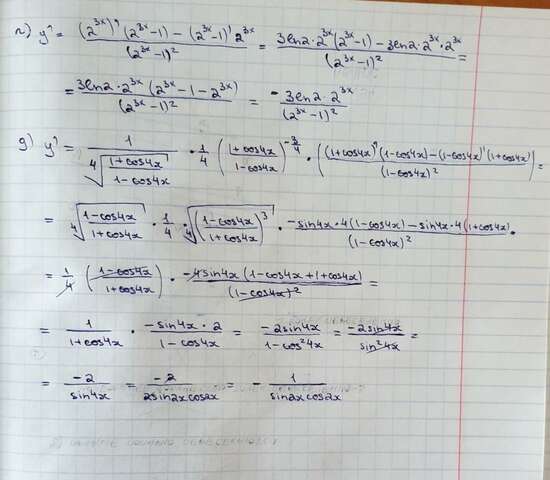 г) y' = ((2^{3x})' (2^{3x}-1) - (2^{3x}-1)' 2^{3x}) / (2^{3x}-1)^2 = (3ln2·2^{3x}(2^{3x}-1) - 3ln2·2^{3x}·2^{3x}) / (2^{3x}-1)^2 =
= (3ln2·2^{3x} (2^{3x}-1-2^{3x})) / (2^{3x}-1)^2 = - (3ln2·2^{3x}) / (2^{3x}-1)^2
g) y' = 1 / ∜((1+cos4x)/(1-cos4x)) · 1/4 ((1+cos4x)/(1-cos4x))^{-3/4} · (((1+cos4x)'(1-cos4x)-(1-cos4x)'(1+cos4x)) / (1-cos4x)^2) =
= ∜((1-cos4x)/(1+cos4x)) · 1/4 · ∜(((1-cos4x)/(1+cos4x))^3) · (-sin4x·4(1-cos4x)-sin4x·4(1+cos4x)) / (1-cos4x)^2 ·
= 1/4 ((1-cos4x)/(1+cos4x)) · (-4sin4x(1-cos4x+1+cos4x)) / (1-cos4x)^2 =
= 1/(1+cos4x) · (-sin4x·2)/(1-cos4x) = (-2sin4x)/(1-cos^2 4x) = (-2sin4x)/(sin^2 4x) =
= -2/(sin4x) = -2/(2sin2xcos2x) = - 1/(sin2xcos2x)